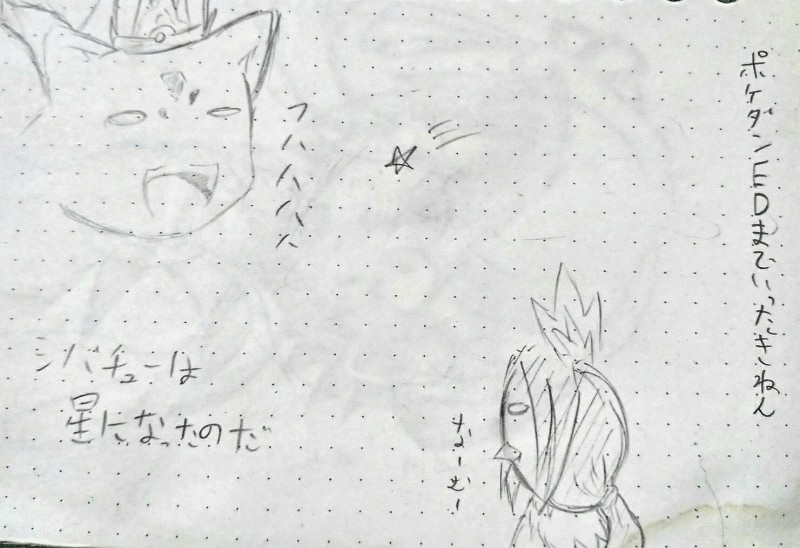 ポケダンEDまでいったきねん
フハハハハ
シバチューは
星になったのだ
なーむー